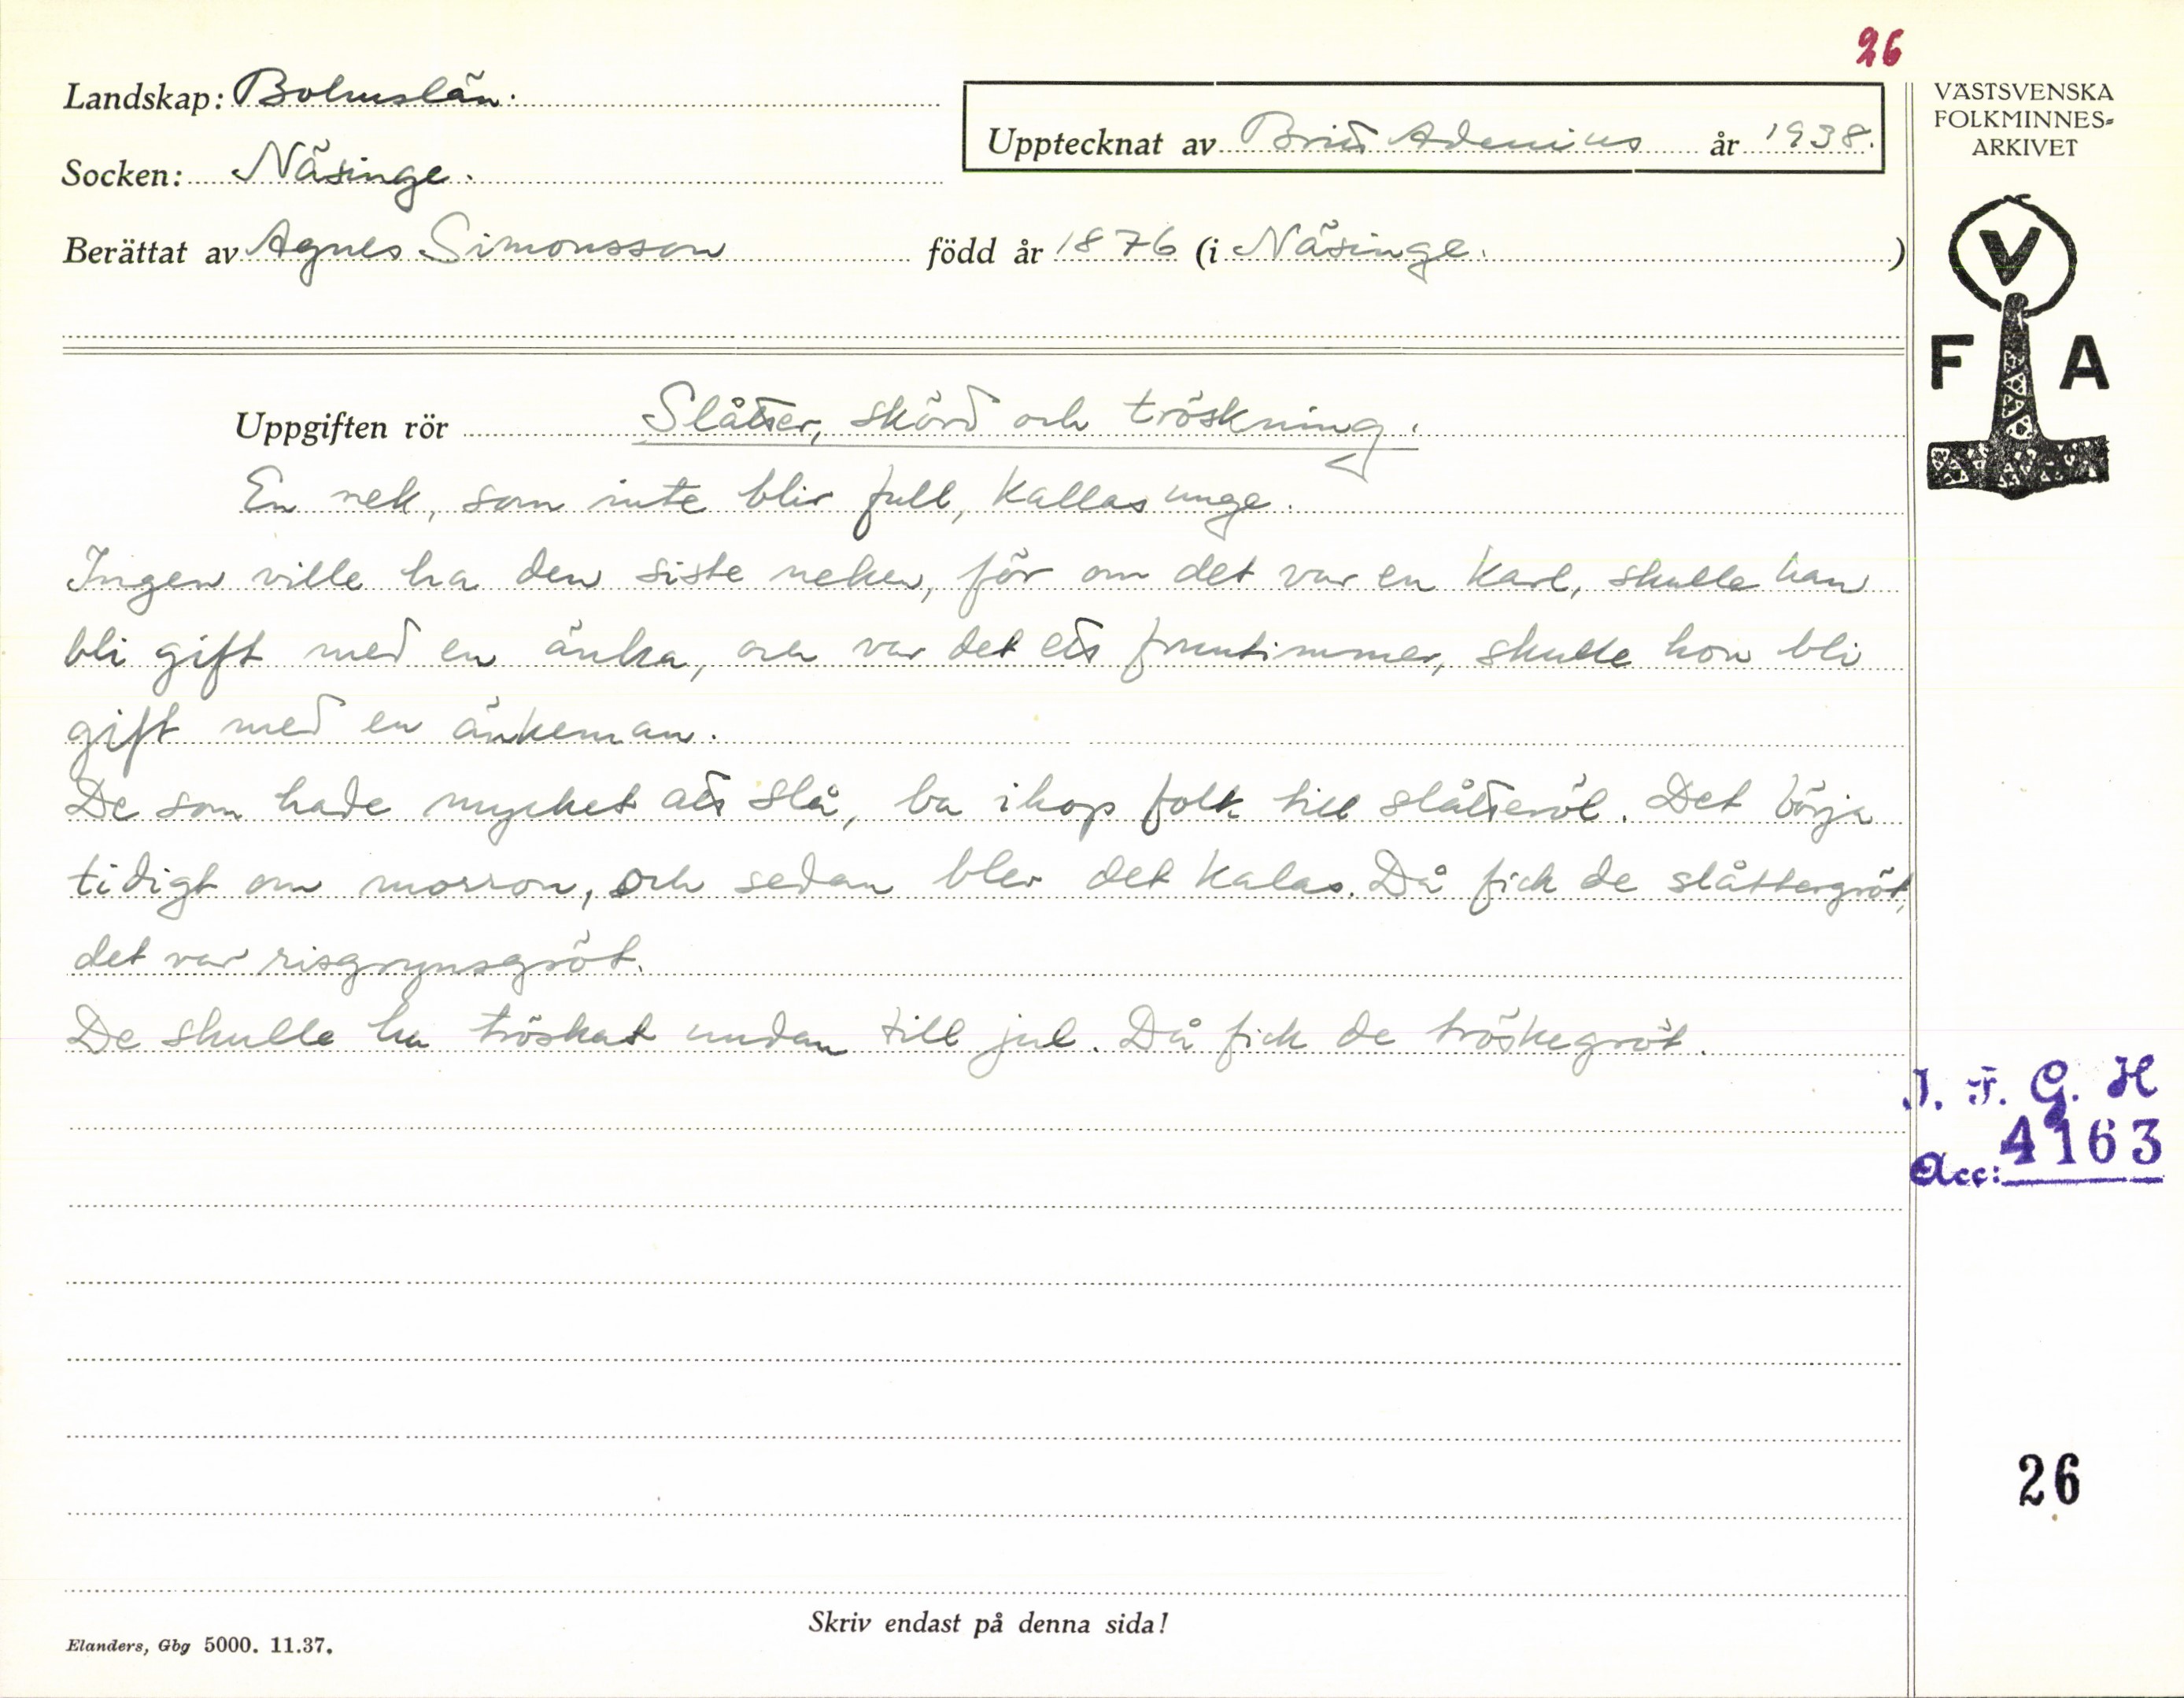 26
Landskap: Bohuslän.
Upptecknat av Britt Adenius år 1938.
Socken: Näsinge.
Berättat av Agnes Simonsson född år 1876 (i Näsinge. )
VÄSTSVENSKA
FOLKMINNES-
ARKIVET
V
F A
Uppgiften rör Slåtter, skörd och tröskning.
En nek, som inte blir full, kallas unge.
Ingen ville ha den siste neken, för om det var en karl, skulle han
bli gift med en änka, och var det ett fruntimmer, skulle hon bli
gift med en änkeman.
De som hade mycket att slå, ba ihop folk till slåtteröl. Det börja
tidigt om morron, och sedan blev det kalas. Då fick de slåttergröt,
det var risgrynsgröt.
De skulle ha tröskat undan till jul. Då fick de tröskegröt.
I. F. G. H
Acc: 4163
26
Skriv endast på denna sida!
Elanders, Gbg 5000. 11.37.